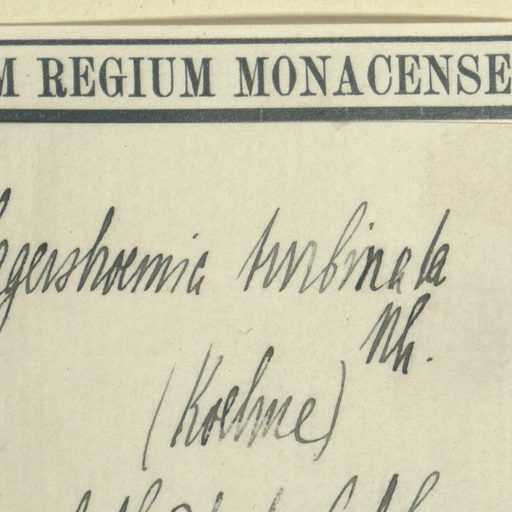 M REGIUM MONACENSE
agershoemia turbinata
Nh.
(Koehne)